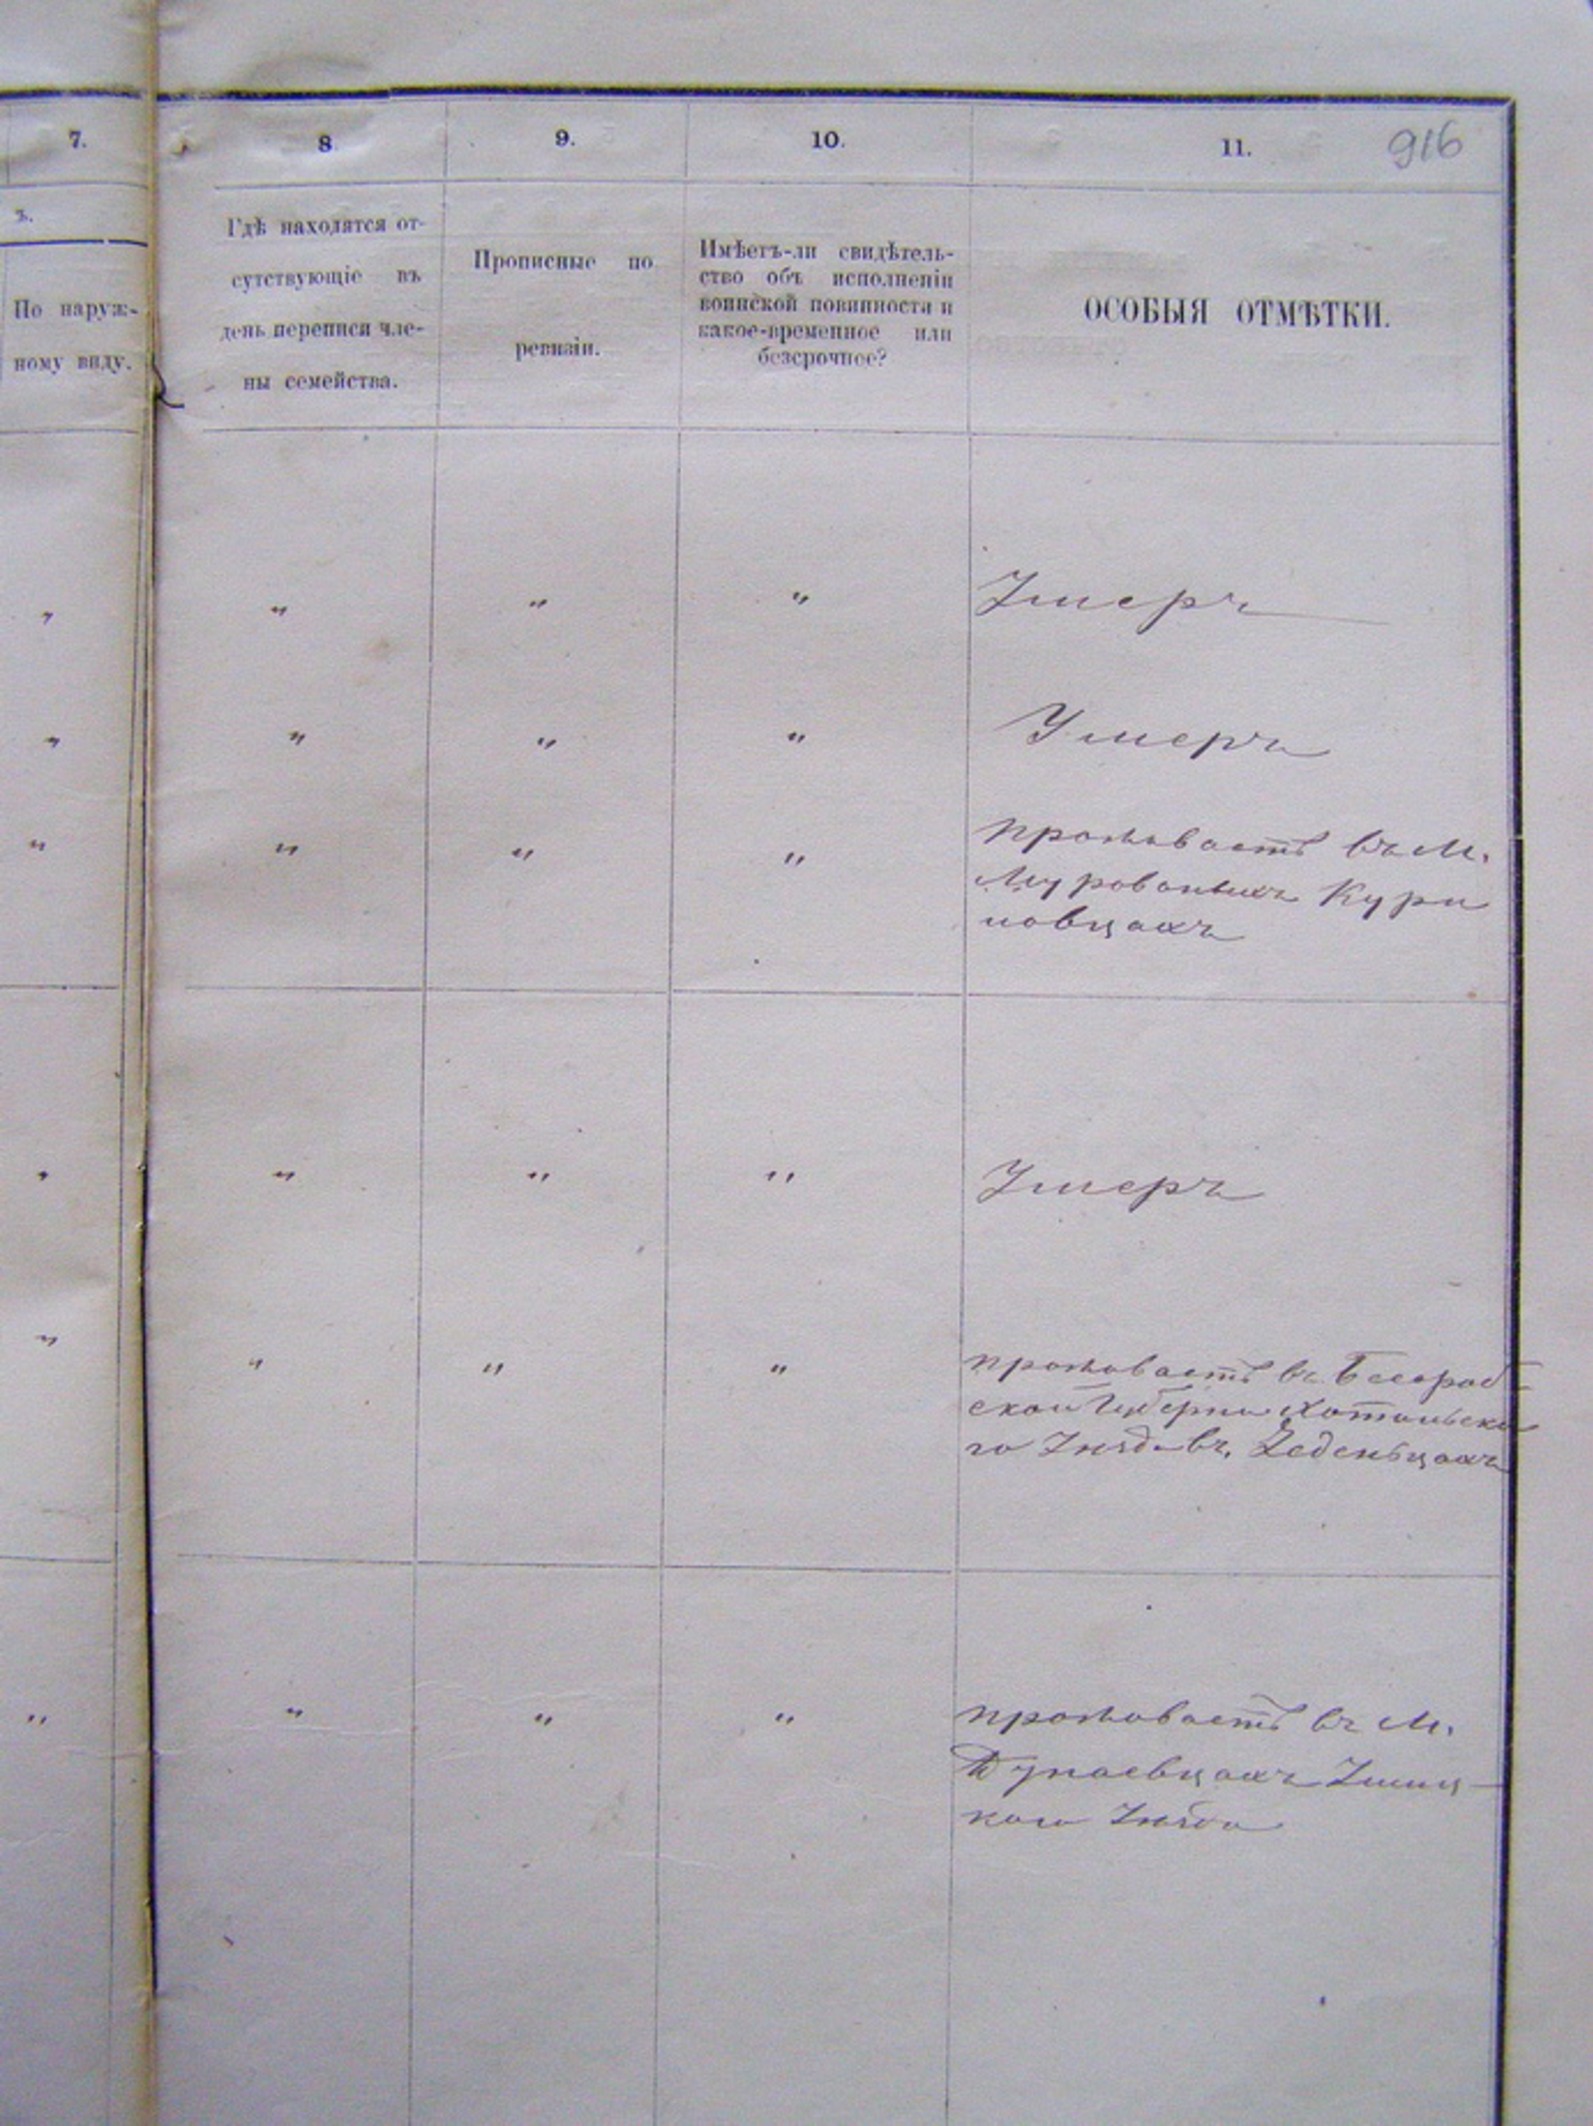 7. 8 9. 10. 11. 916
ъ.
По наруж-
ному виду.
Гдѣ находятся от-
сутствующіе въ
день переписи чле-
ны семейства.
Прописные по
ревизіи.
Имѣетъ-ли свидѣтель-
ство объ исполненіи
воинской повинности и
какое-временное или
безсрочное?
ОСОБЫЯ ОТМѢТКИ.
" " " " Умеръ
" " " " Умеръ
" " " " проживаетъ въ м.
Мурованыхъ Кури
ловцахъ
" " " " Умеръ
" " " " проживаетъ въ Бесараб
ской Губерни Хотиньска
го Уѣзда въ. Еденьцахъ
" " " " проживаетъ въ м.
Дунаевцахъ Ушиц-
кого Уѣзда